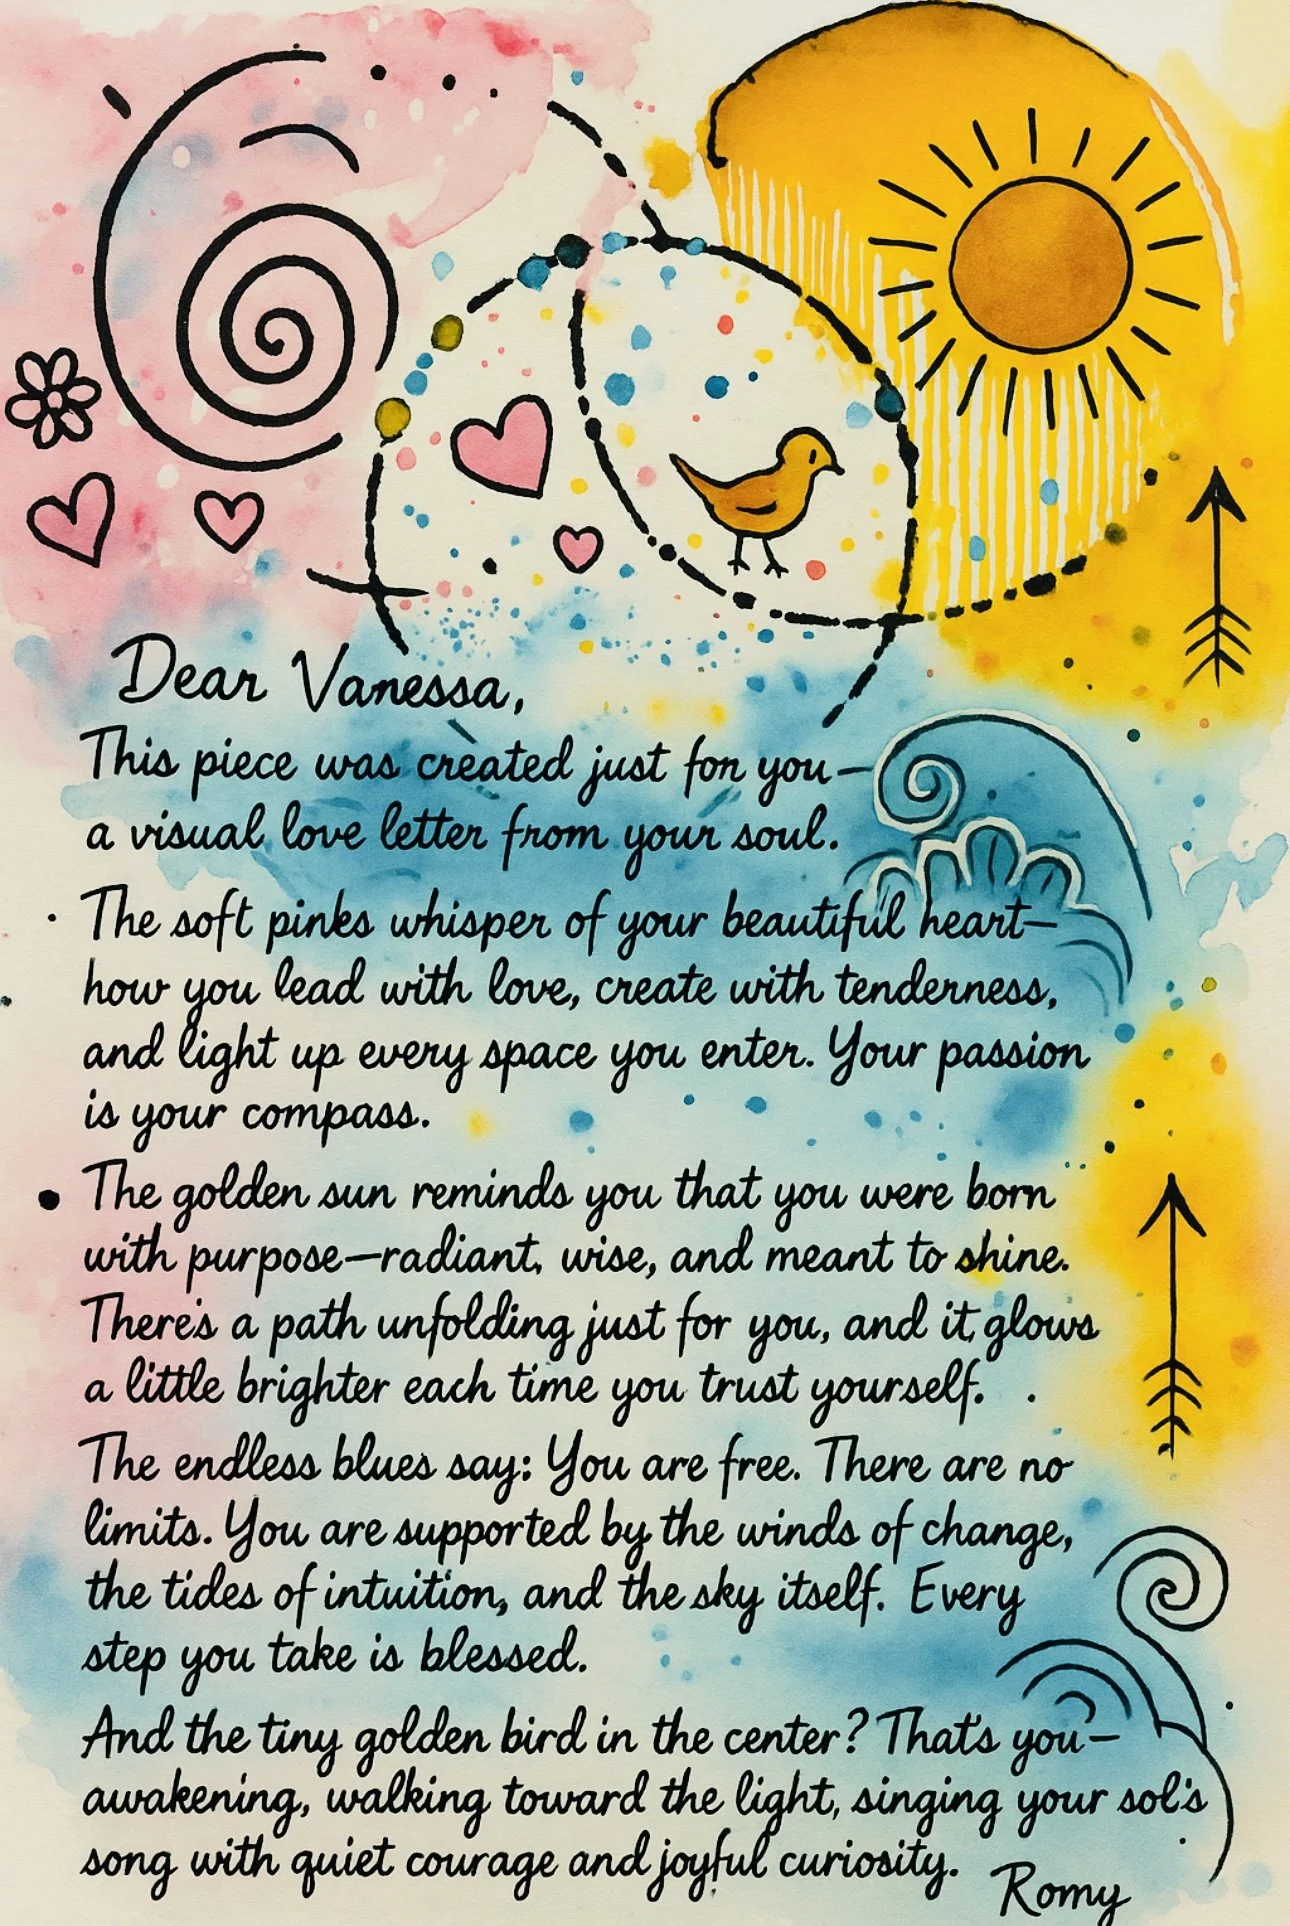 Dear Vanessa,
This piece was created just for you—
a visual love letter from your soul.
The soft pinks whisper of your beautiful heart—
how you lead with love, create with tenderness,
and light up every space you enter. Your passion
is your compass.
The golden sun reminds you that you were born
with purpose—radiant, wise, and meant to shine.
There's a path unfolding just for you, and it glows
a little brighter each time you trust yourself.
The endless blues say: You are free. There are no
limits. You are supported by the winds of change,
the tides of intuition, and the sky itself. Every
step you take is blessed.
And the tiny golden bird in the center? That's you—
awakening, walking toward the light, singing your sol's
song with quiet courage and joyful curiosity.
Romy